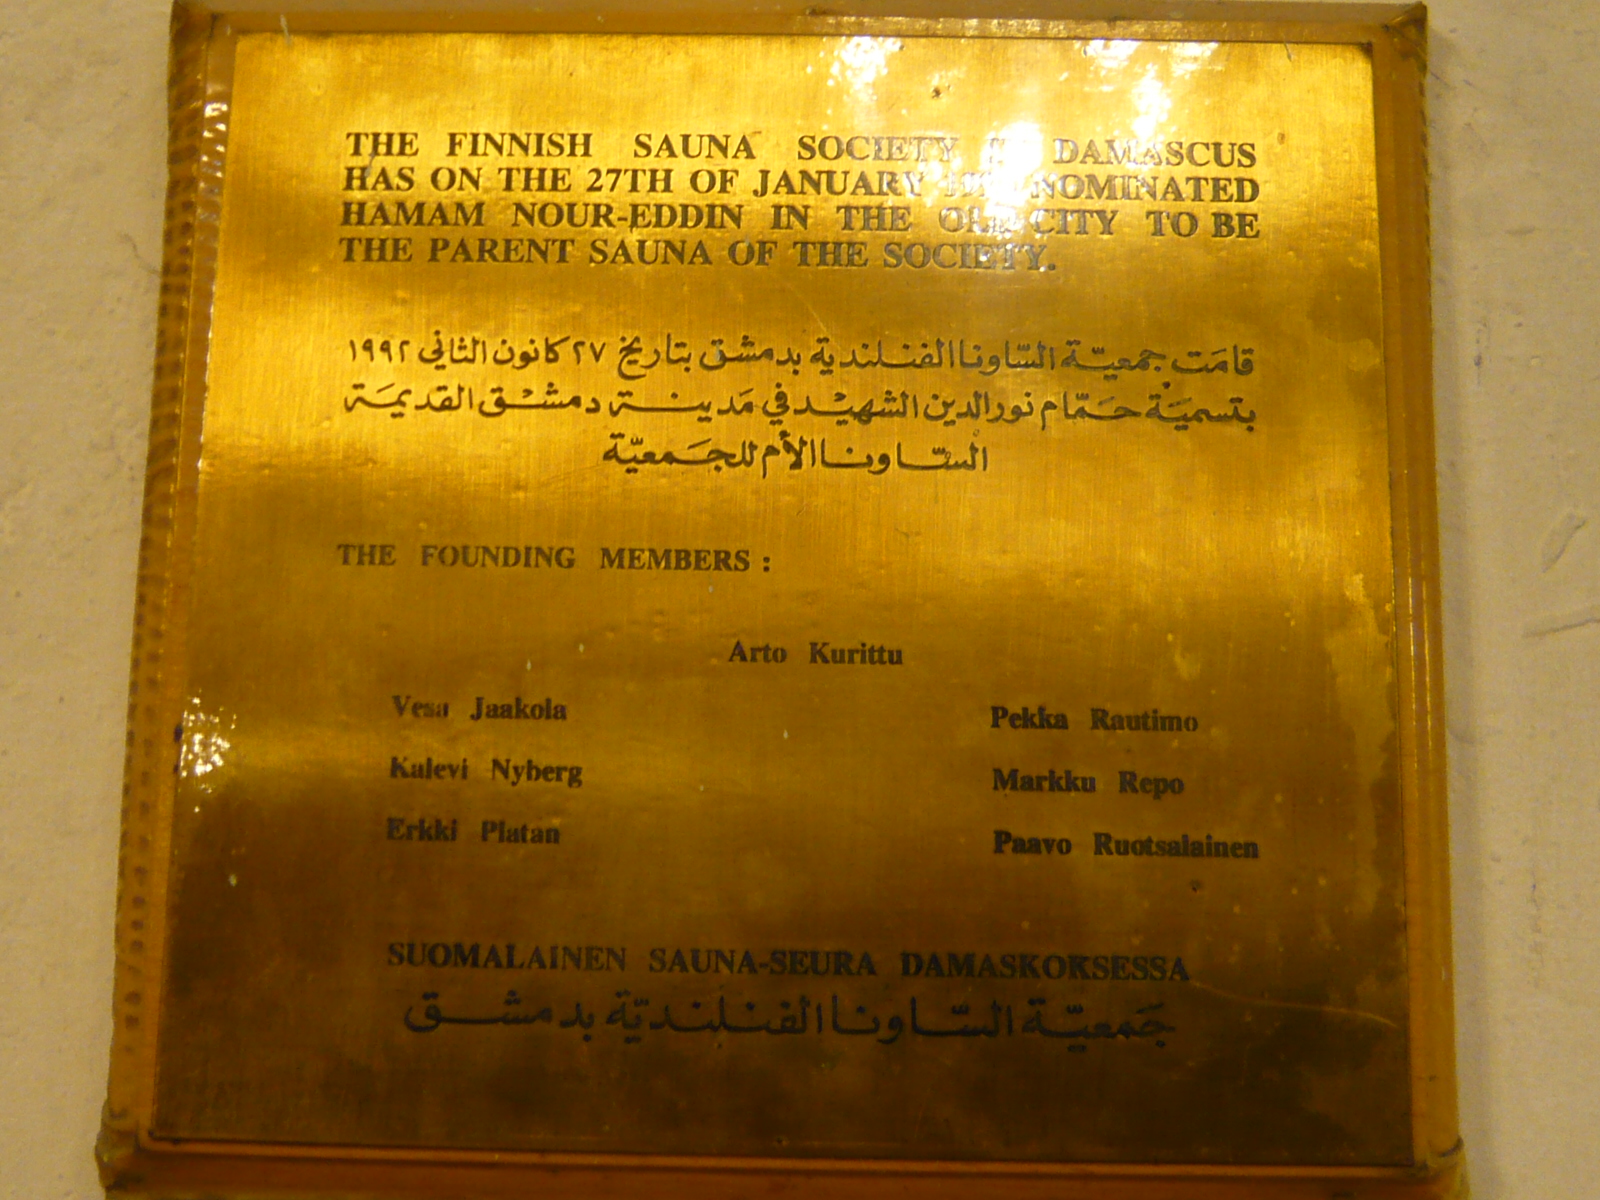 THE FINNISH SAUNA SOCIETY DAMASCUS
HAS ON THE 27TH OF JANUARY NOMINATED
HAMAM NOUR-EDDIN IN THE OLD CITY TO BE
THE PARENT SAUNA OF THE SOCIETY.
قامَت جمعيّة السّاونا الفنلندية بدمشق بتاريخ ٢٧ كانون الثاني ١٩٩٢
بتسميَة حمّام نور الدين الشهيد في مَدينة دمشق القديمَة
السّاونا الأم للجَمعيّة
THE FOUNDING MEMBERS :
Arto Kurittu
Vesa Jaakola
Kalevi Nyberg
Erkki Platan
Pekka Rautimo
Markku Repo
Paavo Ruotsalainen
SUOMALAINEN SAUNA-SEURA DAMASKOKSESSA
جَمعيّة السّاونا الفنلنديّة بدمشق